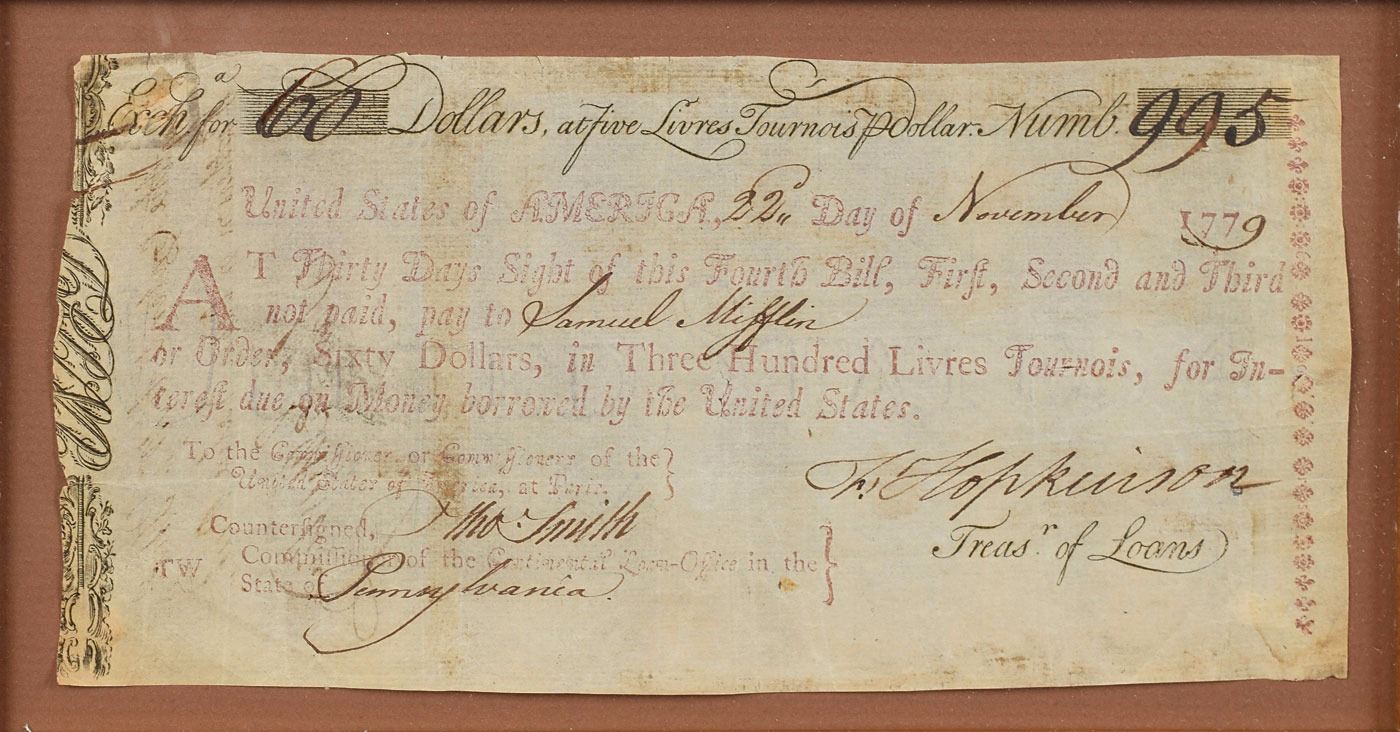 Exchᵃ. for 60 Dollars, at five Livres Tournois ⅌ dollar. Numb. 995
United States of AMERICA, 22ᵈ Day of November 1779
AT Thirty Days Sight of this Fourth Bill, Firſt, Second and Third
not paid, pay to Samuel Mifflin
or Order, Sixty Dollars, in Three Hundred Livres Tournois, for In-
tereſt due on Money borrowed by the United States.
To the Commiſſioner or Commiſſioners of the
United States of America, at Paris.
Fs Hopkinson
Treasʳ of Loans
Counterſigned, Tho.ˢ Smith
TW Commiſſioner of the Continental Loan-Office in the
State of Pennsylvania.